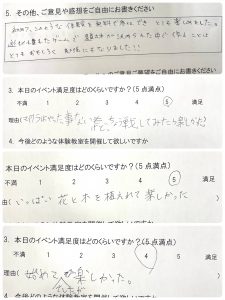 5. その他、ご意見や感想をご自由にお書きください
初めて、このような体験を無料で参加でき とても楽しめました。
とてもおもしろく 勉強にもなりました!!
3. 本日のイベント満足度はどのくらいですか？(5点満点)
不満 1 2 3 4 5 満足
理由(マイクラはやった事ないけど、ちょう戦してみたら楽しかった)
4. 今後どのような体験教室を開催して欲しいですか
3. 本日のイベント満足度はどのくらいですか？(5点満点)
不満 1 2 3 4 5 満足
理由(いっぱい花と木を植えれて楽しかった
3. 本日のイベント満足度はどのくらいですか？(5点満点)
不満 1 2 3 4 5 満足
理由(始めてで楽しかった。
4. 今後どのような体験教室を開催して欲しいですか